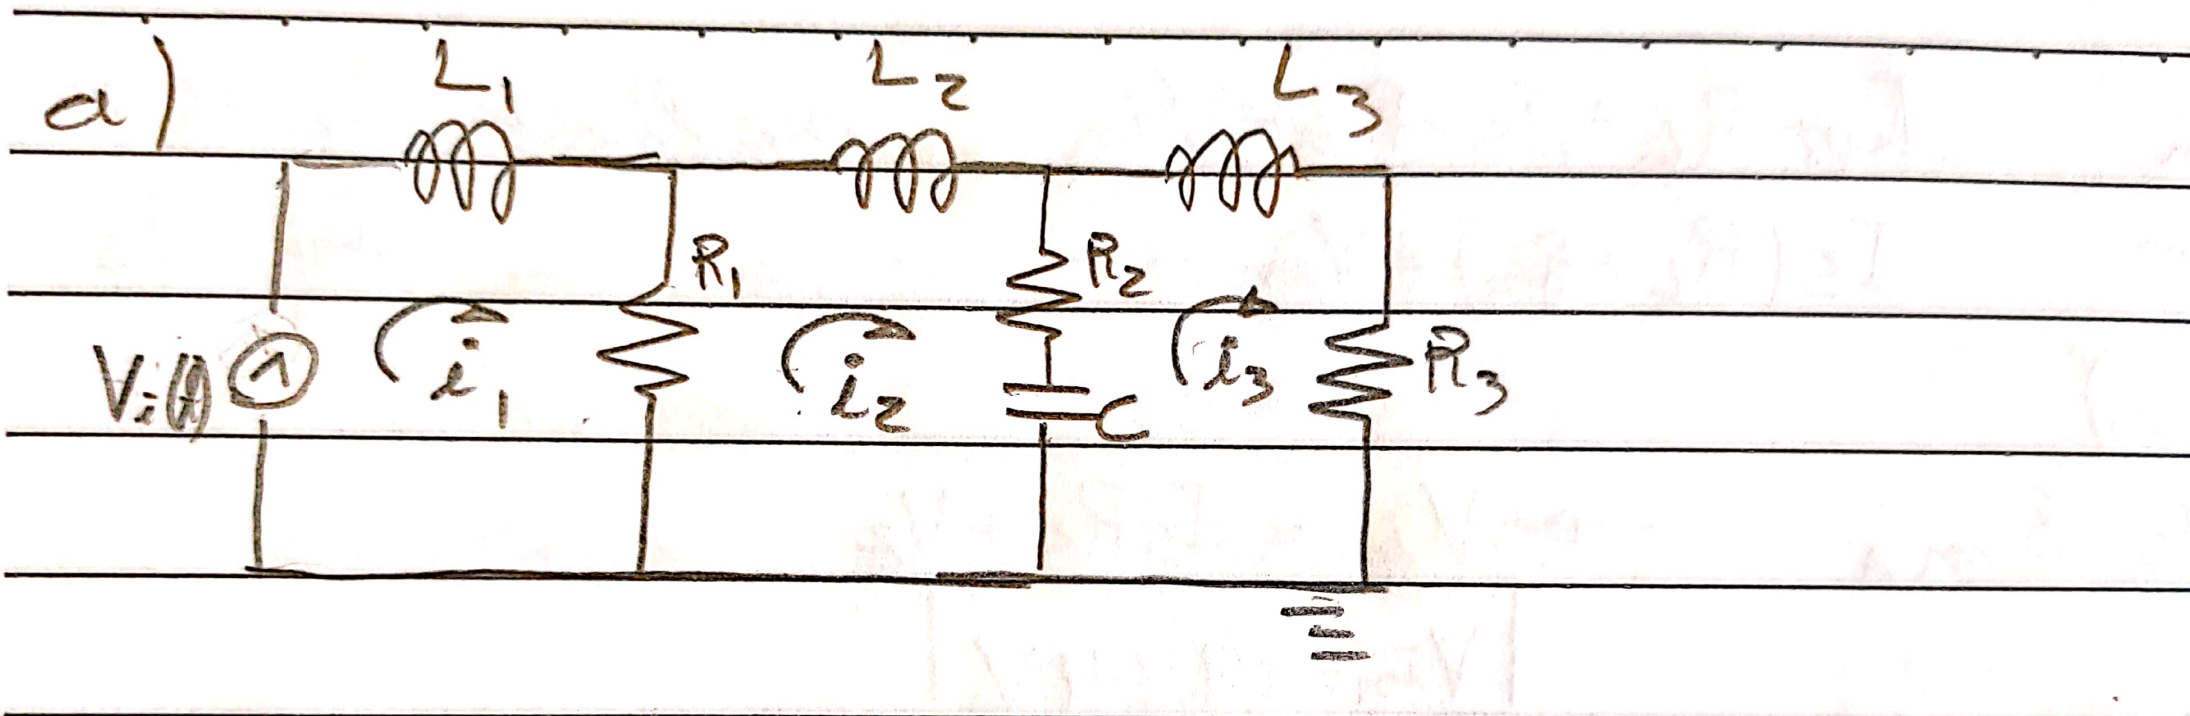 a)
L1 L2 L3
R1 R2
Vi(t) i1 i2 i3 R3
C